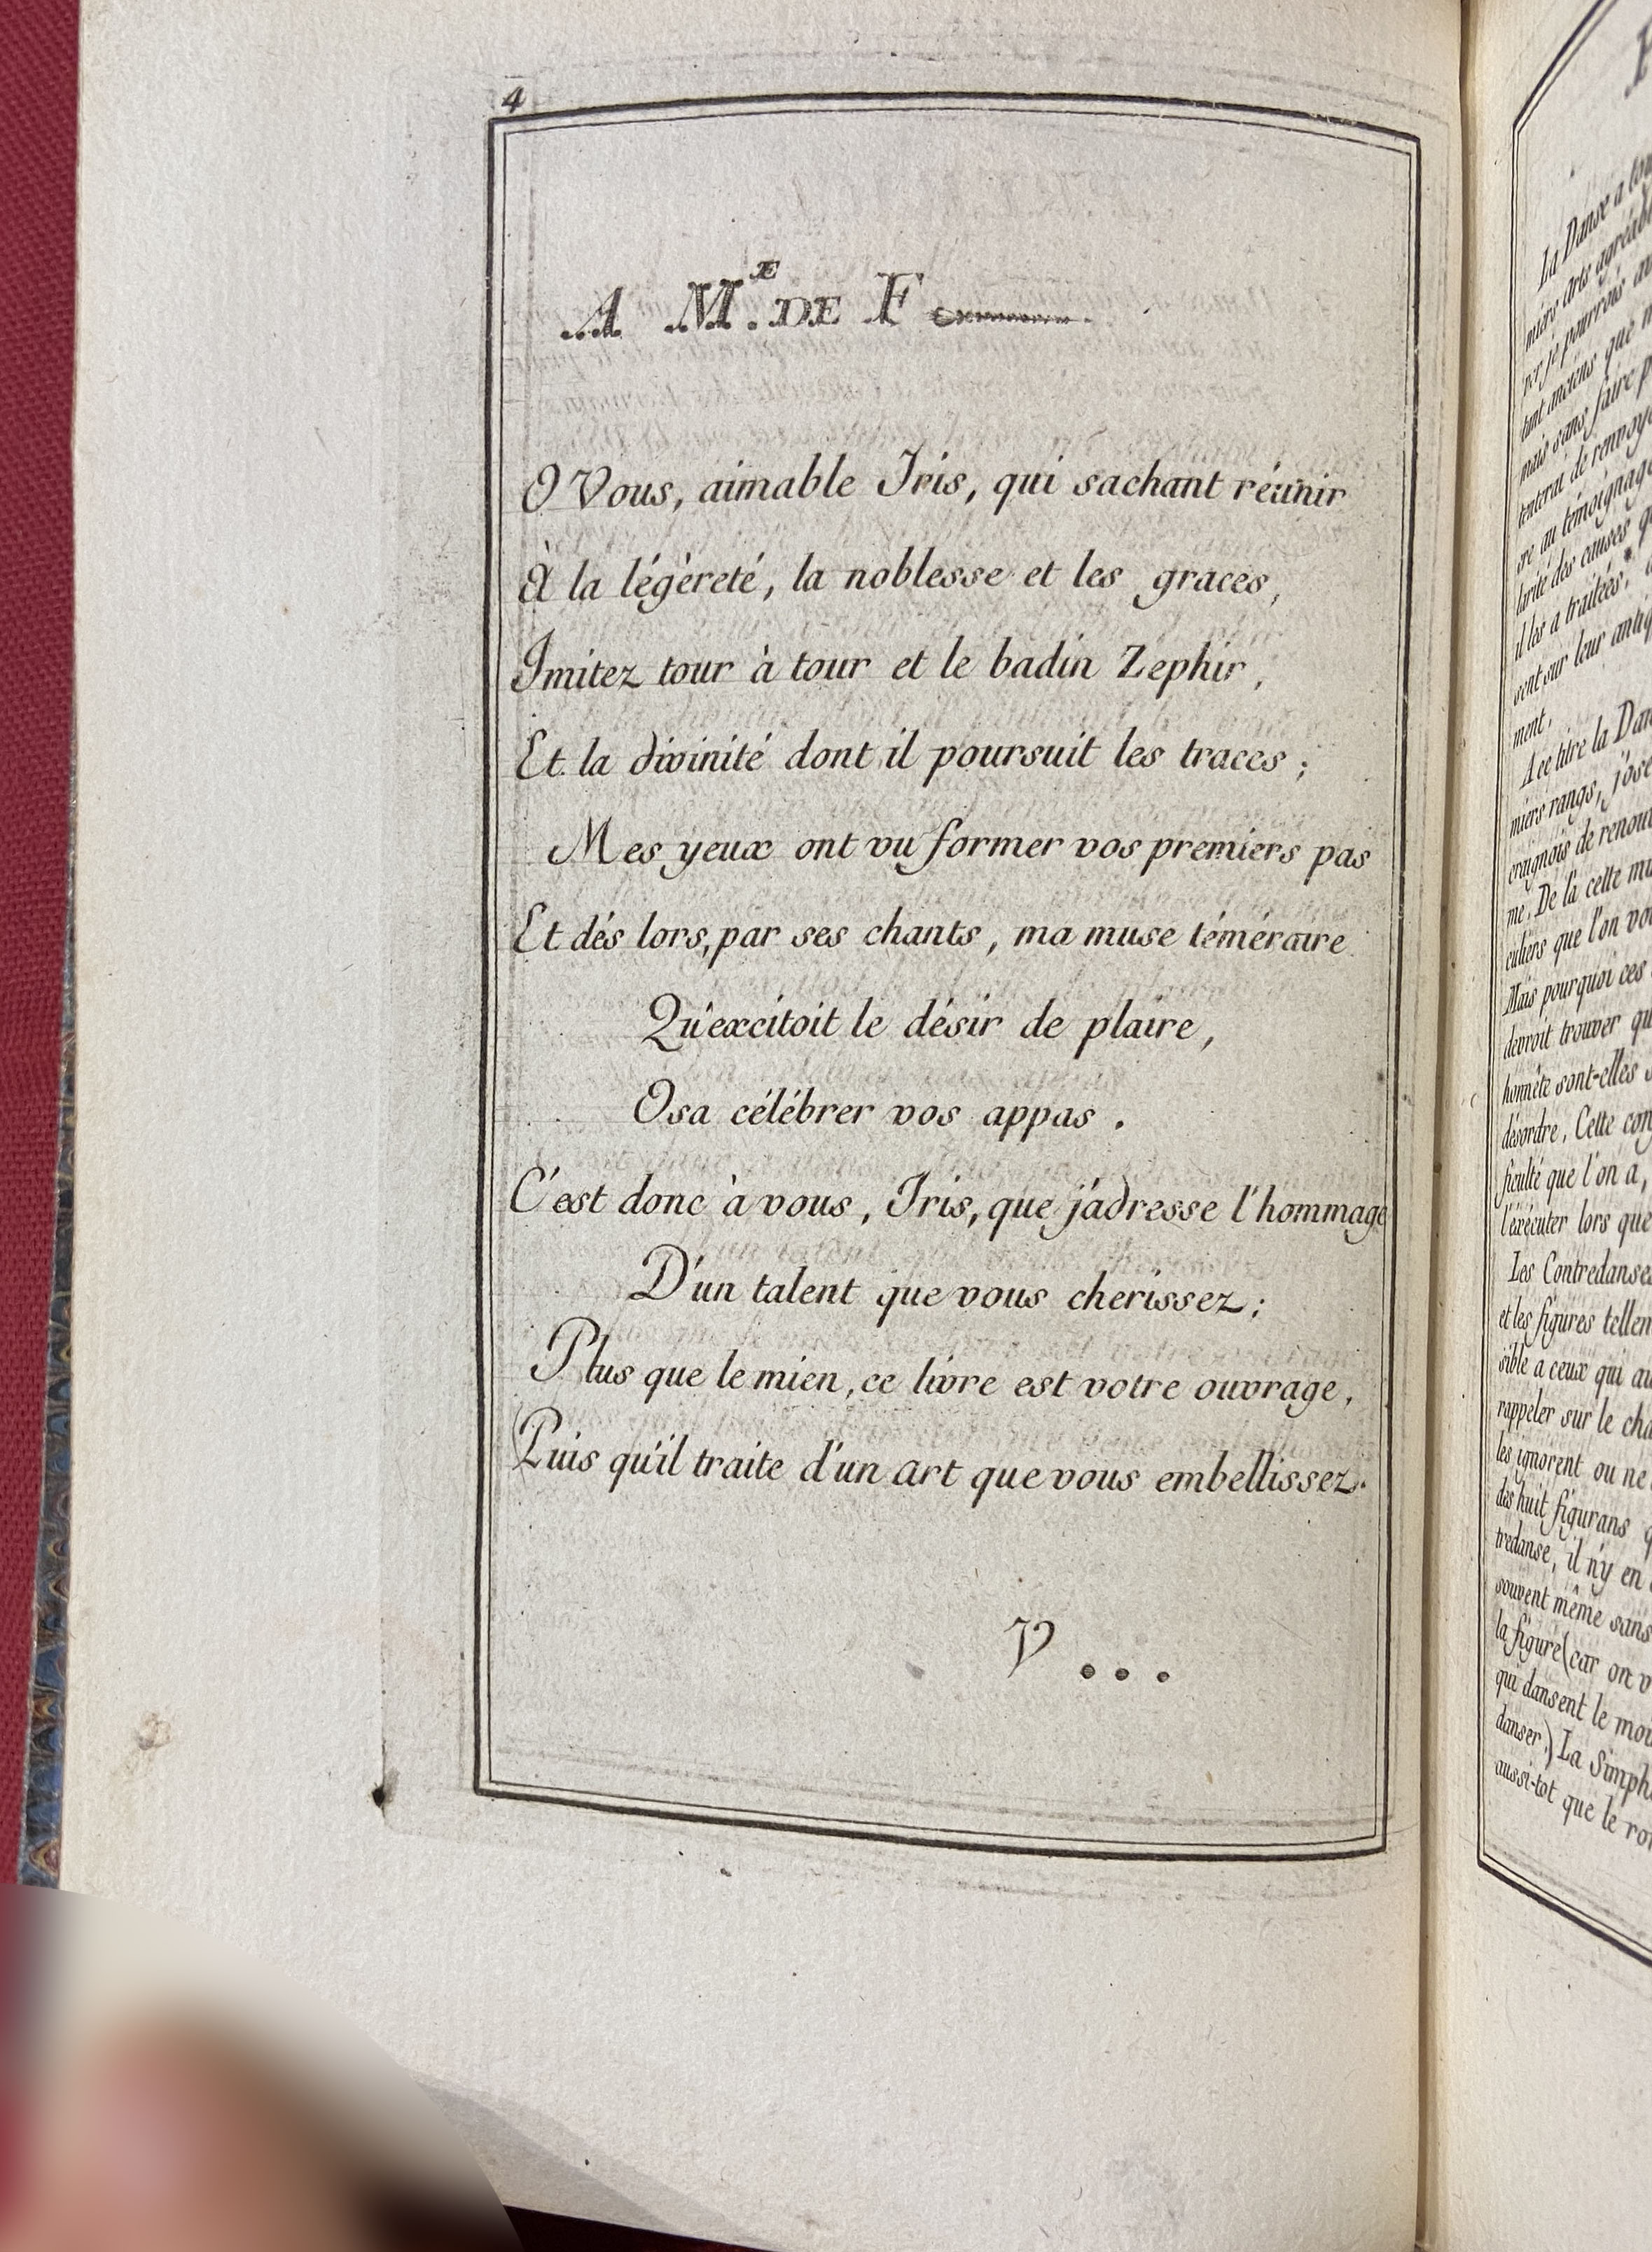 4
A M.E DE F
O Vous, aimable Iris, qui sachant réunir
À la légèreté, la noblesse et les graces,
Imitez tour à tour et le badin Zephir,
Et la divinité dont il poursuit les traces ;
Mes yeux ont vu former vos premiers pas
Et dés lors, par ses chants, ma muse téméraire
Qu'excitoit le désir de plaire,
Osa célébrer vos appas.
C'est donc à vous, Iris, que j'adresse l'hommage
D'un talent que vous cherissez ;
Plus que le mien, ce livre est votre ouvrage,
Puis qu'il traite d'un art que vous embellissez.
V...
La Danse a
miers arts
per, je pourrois
tant anciens que
mais sans faire
tenterai de
re au
larité des causes
il les a traitées,
sent sur leur
ment.
A ce titre la
miers rangs, j'ose
craignois de
me. De là cette
culiers que l'on
Mais pourquoi ces
devroit trouver
honnête sont-elles
désordre. Cette
ficulté que l'on a,
l'exécuter lors que
Les Contredanses
et les figures
sible a ceux qui
rappeler sur le
les ignorent ou ne
des huit figurans
tredanse, il n'y en
souvent même sans
la figure (car on
qui dansent le
danser.) La
aussi-tot que le